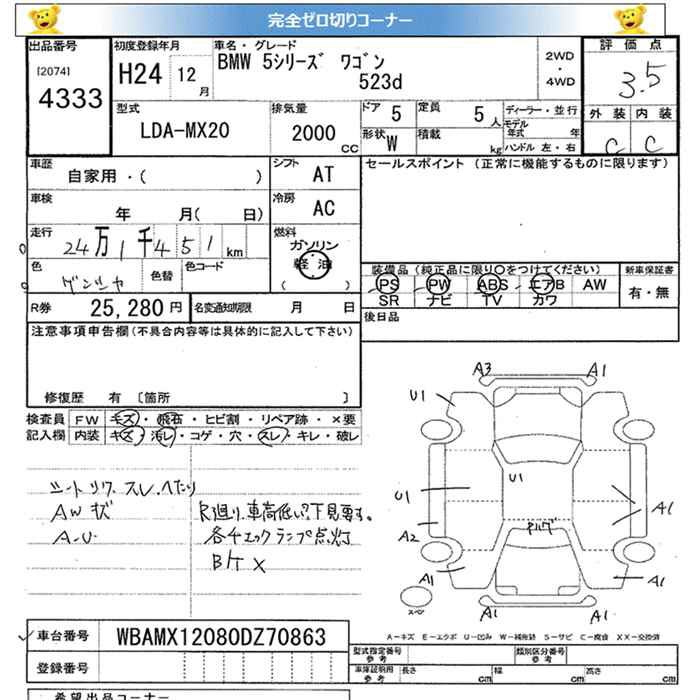 完全ゼロ切りコーナー
出品番号 初度登録年月 車名・グレード 評価点
[2074] H24 12月 BMW 5シリーズ ワゴン 2WD・4WD 3.5
4333 523d
型式 排気量 ドア 5 定員 5人 ディーラー・並行 外装 内装
LDA-MX20 2000cc 形状 W 積載 kg モデル年式 年 ハンドル 左・右 C C
車歴 自家用・( ) シフト AT セールスポイント (正常に機能するものに限ります)
車検 年 月( 日) 冷房 AC
走行 24万1千451km 燃料 ガソリン
軽油
( )
色 色替 色コード 装備品 (純正品に限り○をつけてください) 新車保証書
PS PW ABS エアB AW 有・無
R券 25,280円 名変通知期限 月 日 SR ナビ TV カワ
注意事項申告欄(不具合内容等は具体的に記入して下さい) 後日品
修復歴 有 〔箇所 〕
検査員 FW キズ・飛石・ヒビ割・リペア跡・×要
記入欄 内装 キズ・汚レ・コゲ・穴・スレ・キレ・破レ
シートリク.スレ.へたり
AW 状 R廻り.車高低い?下見要す。
A-U 各チェックランプ点灯
B/ケ X
A3 A1
U1
U1 U1 A1
A2
A1 A1
スペア A1 A1
A-キズ E-エクボ U-凹み W-補修跡 S-サビ C-腐食 XX-交換済
車台番号 WBAMX12080DZ70863 型式指定番号 参考 類別区分番号 参考
登録番号 車庫証明用 参考 長さ cm 幅 cm 高さ cm
希望出品コーナー